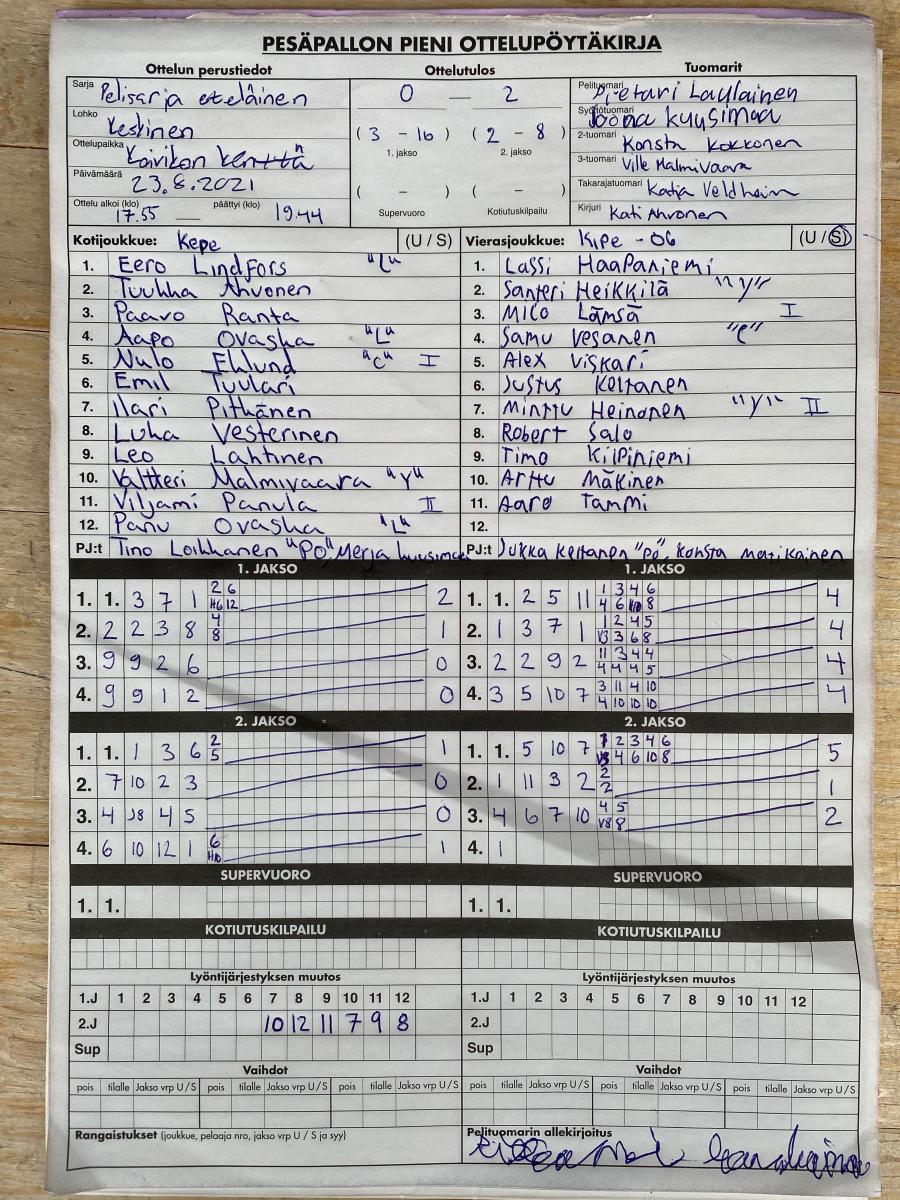 PESÄPALLON PIENI OTTELUPÖYTÄKIRJA
Ottelun perustiedot
Sarja Pelisarja eteläinen
Lohko Keskinen
Ottelupaikka Koivikon kenttä
Päivämäärä 23.8.2021
Ottelu alkoi (klo) 17.55 — päättyi (klo) 19.44
Ottelutulos
0 — 2
( 3 - 16 ) ( 2 - 8 )
1. jakso 2. jakso
( - ) ( - )
Supervuoro Kotiutuskilpailu
Tuomarit
Pelituomari Pietari Laulainen
Syöttötuomari Joona Kuusimaa
2-tuomari Konsta Kokkonen
3-tuomari Ville Malmivaara
Takarajatuomari Katja Veldheim
Kirjuri Kati Ahvonen
Kotijoukkue: Kepe (U / S)
1. Eero Lindfors "L"
2. Tuukka Ahvonen
3. Paavo Ranta
4. Aapo Ovaska "L"
5. Nulo Ehlund "C" I
6. Emil Tuulari
7. Ilari Pitkänen
8. Luka Vesterinen
9. Leo Lahtinen
10. Valtteri Malmivaara "y"
11. Viljami Panula II
12. Panu Ovaska "L"
PJ:t Tino Loikkanen "PO", Merja kuusimaa
Vierasjoukkue: Kipe -06 (U / S)
1. Lassi Haapaniemi
2. Santeri Heikkilä "y"
3. Milo Lämsä I
4. Samu Vesanen "C"
5. Alex Viskari
6. Justus Keltanen
7. Minttu Heinonen "y" II
8. Robert Salo
9. Timo Kilpiniemi
10. Arttu Mäkinen
11. Aaro Tammi
12.
PJ:t Jukka Keltanen "PO", Konsta Matikainen
1. JAKSO
2 6
1. 1. 3 7 1 H6 12 2
4
2. 2 2 3 8 8 1
3. 9 9 2 6 0
4. 9 9 1 2 0
2. JAKSO
2
1. 1. 1 3 6 5 1
2. 7 10 2 3 0
3. 4 J8 4 5 0
6
4. 6 10 12 1 H10 1
SUPERVUORO
1. 1.
KOTIUTUSKILPAILU
Lyöntijärjestyksen muutos
1.J 1 2 3 4 5 6 7 8 9 10 11 12
2.J 10 12 11 7 9 8
Sup
Vaihdot
pois tilalle Jakso vrp U / S pois tilalle Jakso vrp U / S pois tilalle Jakso vrp U / S
Rangaistukset (joukkue, pelaaja nro, jakso vrp U / S ja syy)
1. JAKSO
1 3 4 6
1. 1. 2 5 11 4 6 8 4
1 2 4 5
2. 1 3 7 1 V3 3 6 8 4
11 3 4 4
3. 2 2 9 2 4 4 4 5 4
3 11 4 10
4. 3 5 10 7 4 10 10 10 4
2. JAKSO
1 2 3 4 6
1. 1. 5 10 7 4 6 10 8 5
2
2. 1 11 3 2 2 1
4 5
3. 4 6 7 10 V8 8 2
4. 1
SUPERVUORO
1. 1.
KOTIUTUSKILPAILU
Lyöntijärjestyksen muutos
1.J 1 2 3 4 5 6 7 8 9 10 11 12
2.J
Sup
Vaihdot
pois tilalle Jakso vrp U / S pois tilalle Jakso vrp U / S pois tilalle Jakso vrp U / S
Pelituomarin allekirjoitus